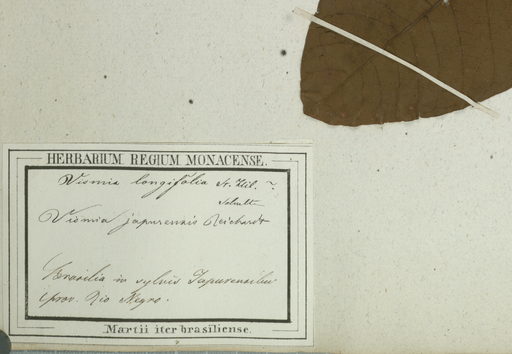 HERBARIUM REGIUM MONACENSE.
Vismia longifolia St. Hil. ?
Vismia japurensis Reichardt
Brasilia in sylvis Japurensibus
prov. Rio Negro.
Martii iter brasiliense.